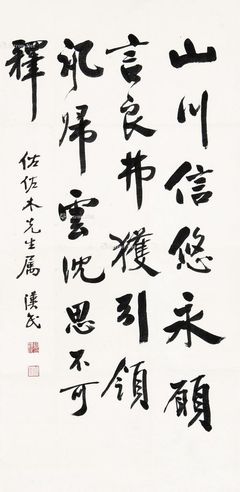 山川信悠永願
言良弗獲引領
訊歸雲沈思不可
釋
佐佐木先生属 漢民